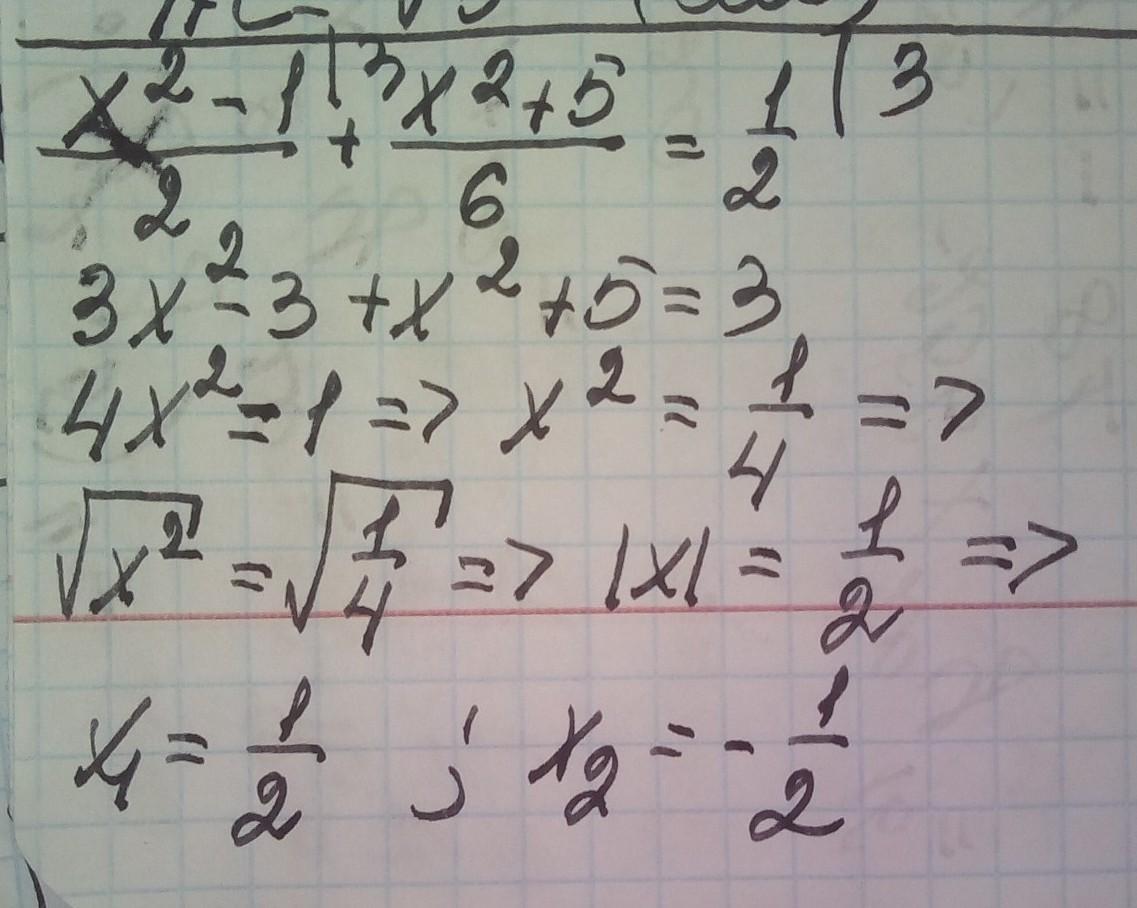 x² - 1 |3 / 2 + x² + 5 / 6 = 1 / 2 | 3
3x² - 3 + x² + 5 = 3
4x² = 1 => x² = 1/4 =>
√x² = √1/4 => |x| = 1/2 =>
x₁ = 1/2 ; x₂ = - 1/2